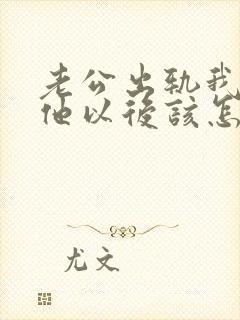 老公出轨我
他以後該怎
尤文